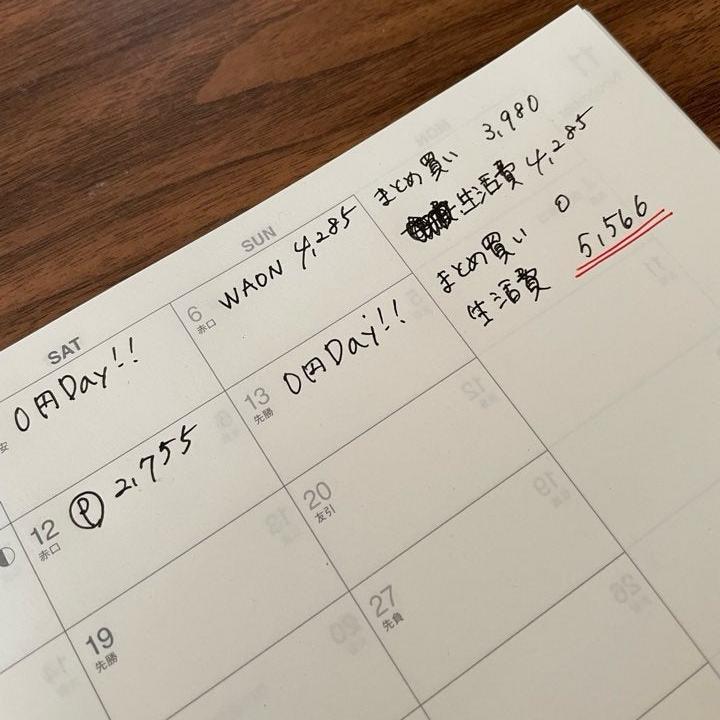 まとめ買い 3,980
生活費 4,285
まとめ買い 0
生活費 5,566
SAT
SUN
安
0円Day!!
6 赤口
WAON 4,285
12 赤口
Ⓟ 2,755
13 先勝
0円Day!!
19 先勝
20 友引
27 先負